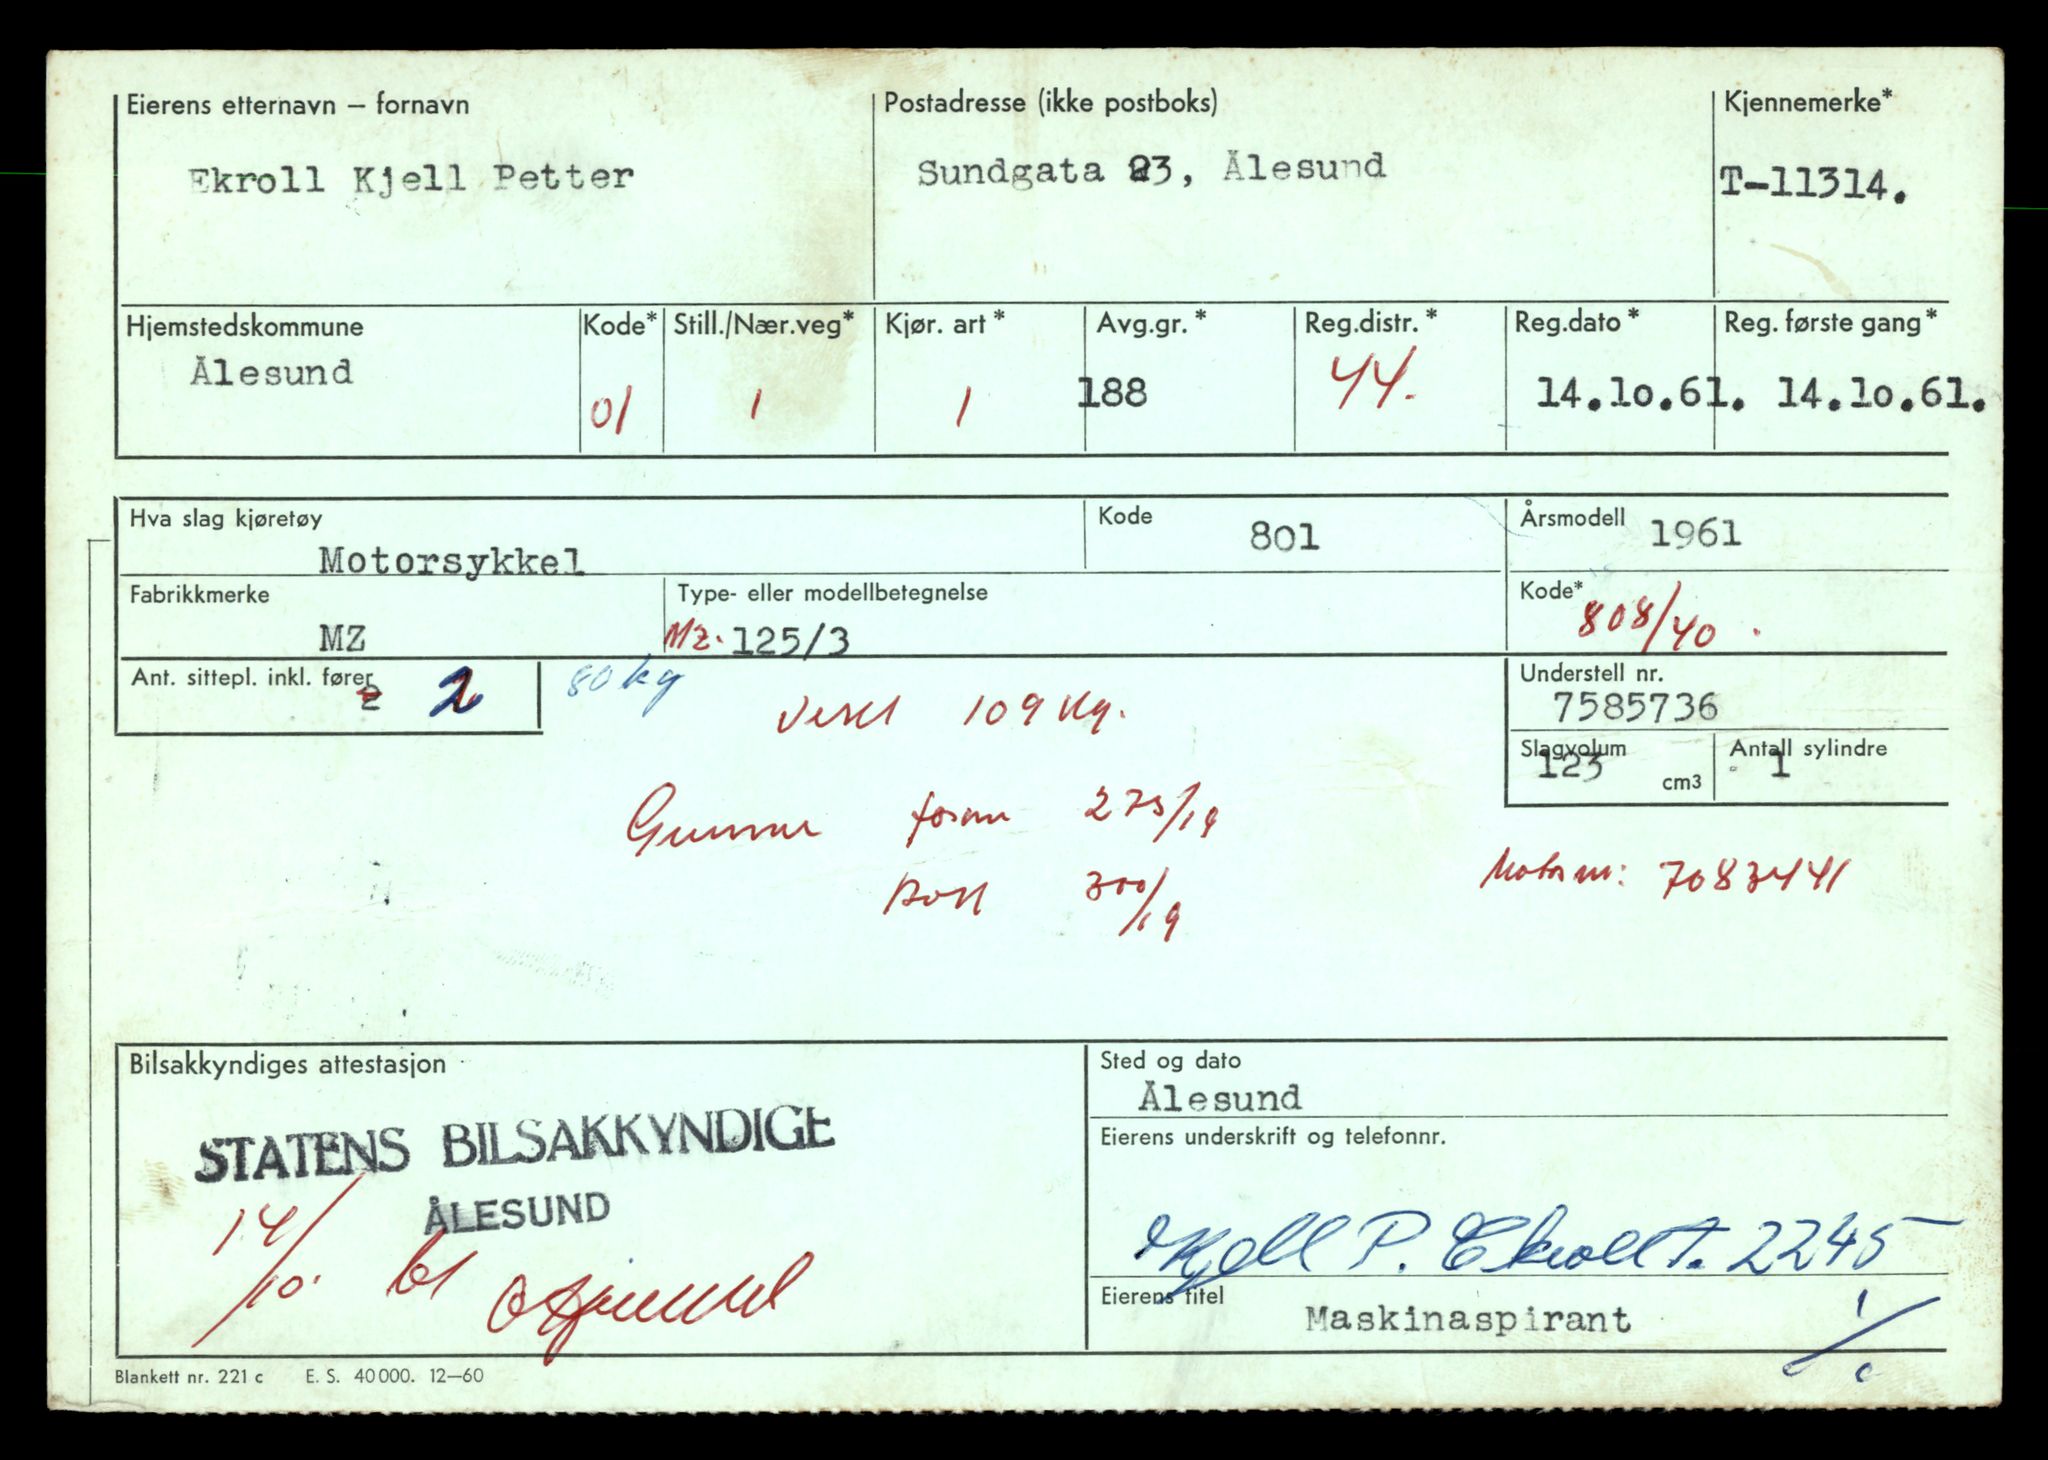 Eierens etternavn – fornavn
Ekroll Kjell Petter
Postadresse (ikke postboks)
Sundgata 23, Ålesund
Kjennemerke*
T-11314.
Hjemstedskommune
Ålesund
Kode*
01
Still./Nær.veg*
1
Kjør. art *
1
Avg.gr. *
188
Reg.distr. *
44.
Reg.dato *
14.10.61.
Reg. første gang *
14.10.61.
Hva slag kjøretøy
Motorsykkel
Kode
801
Årsmodell
1961
Fabrikkmerke
MZ
Type- eller modellbetegnelse
MZ. 125/3
Kode*
808/40.
Ant. sittepl. inkl. fører
2 2
80 kg
Vekt 109 kg.
Understell nr.
7585736
Slagvolum
123 cm3
Antall sylindre
1
Gummi foran 275/19
300/19
Motor nr: 7083441
Bilsakkyndiges attestasjon
STATENS BILSAKKYNDIGE
ÅLESUND
14/10. 61
Sted og dato
Ålesund
Eierens underskrift og telefonnr.
Kjell P. Ekroll t. 2245
Eierens titel
Maskinaspirant
Blankett nr. 221 c E. S. 40 000. 12–60